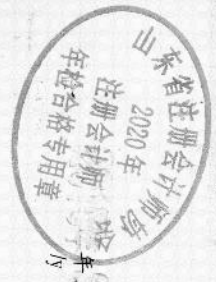 山东省注册会计师协会
2020年
注册会计师
年检合格专用章
年
/y